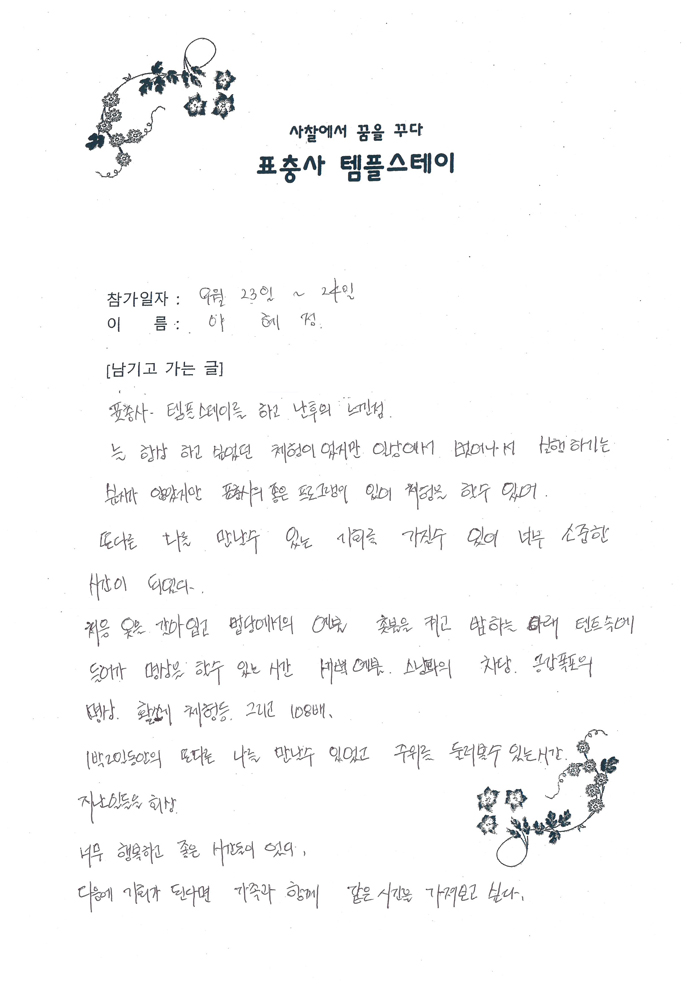 사찰에서 꿈을 꾸다
표충사 템플스테이
참가일자 : 9월 23일 ~ 24일
이 름 : 이 혜 정
[남기고 가는 글]
표충사. 템플스테이를 하고 난후의 느낀점.
늘 항상 하고 싶었던 체험이 있지만 일상에서 벗어나서 실행하기는
쉽지가 않았지만 표충사의 좋은 프로그램이 있어 체험을 할수 있어.
또다른 나를 만날수 있는 기회를 가질수 있어 너무 소중한
시간이 되었다.
처음 옷을 갈아입고 법당에서의 예불 촛불을 켜고 밤하늘 아래 텐트속에
들어가 명상을 할수 있는 시간 새벽예불. 스님과의 차담. 금강폭포의
명상. 활쏘기 체험등. 그리고 108배.
1박2일동안의 또다른 나를 만날수 있었고 주위를 둘러볼수 있는시간.
지난일들을 회상.
너무 행복하고 좋은 시간들이 였어.
다음에 기회가 된다면 가족과 함께 같은시간을 가져보고 싶다.